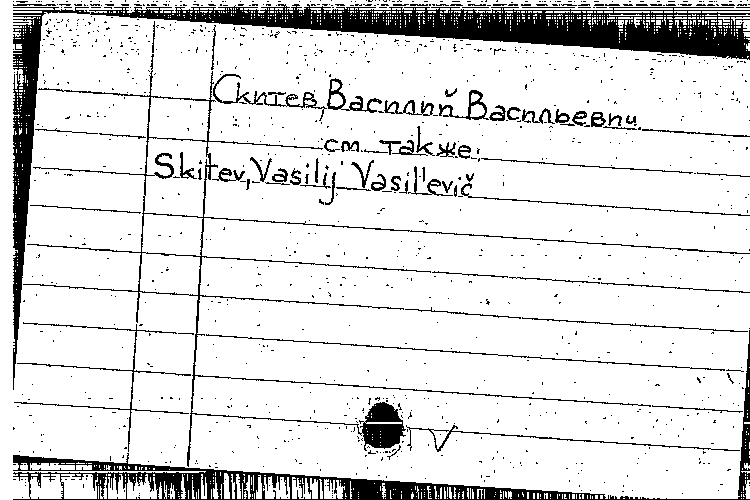 Скитев, Василий Васильевич
см. также:
Skitev, Vasilij Vasil'evič